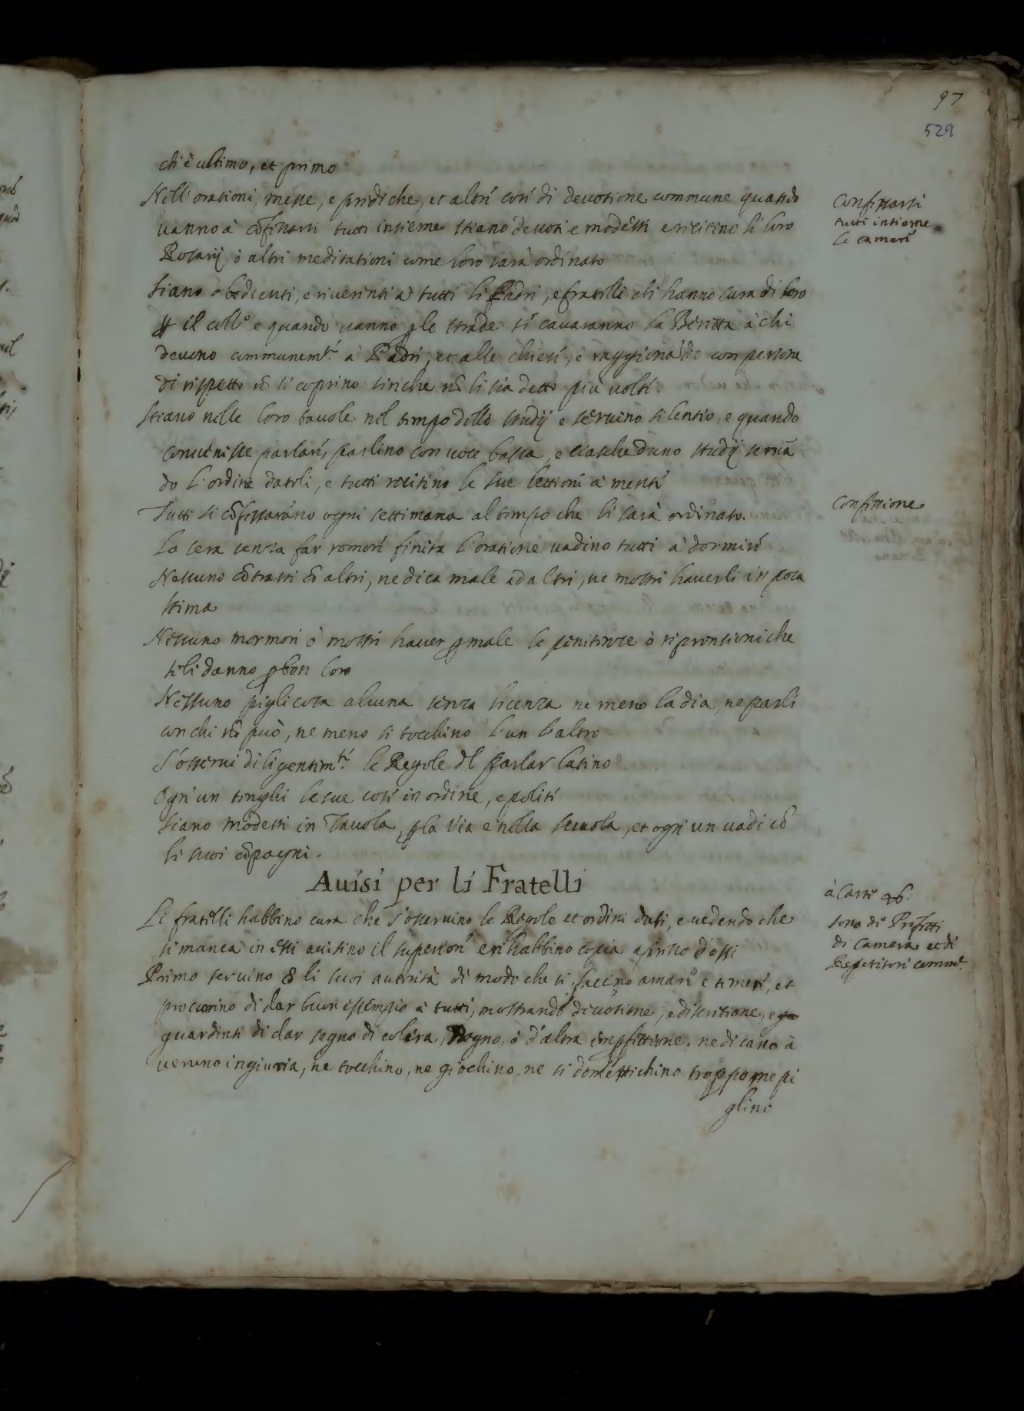 97
529
ch'è ultimo, et primo
Nell'orationi, messe, e prediche, et altri cosi di devotione commune quando
vanno à cōfessarsi tutti insieme stiano devoti e modesti e recitino li loro
Rosarij, ò altri meditationi come loro sarà ordinato
Siano obedienti, e riverenti à tutti li Padri, e fratelli ch'hanno cura di loro
il coll.o e quando vanno ꝑ le strade si cavaranno la Beretta à chi
deveno communem.te à Padri, et alle chiesi, e raggionando con persone
di rispetto nō si coprino sinche nō li sia detto più volti
Stiano nelle loro tavole nel tempo delli studij e servino silentio, e quando
convenisse parlari, parlino con voce bassa, e ciascheduno studij servā
do l'ordine datoli, e tutti recitino le sue lettioni à menti
Tutti si cōfessaranno ogni settimana al tempo che li sarà ordinato.
La sera senza far romori finita l'oratione vadino tutti à dormiri
Nessuno cōtrasti cō altri, ne dica male ad altri, ne mostri haverli in poca
stima
Nessuno mormori ò mostri haver ꝑ male le penitenze ò riprensioni che
se li danno ꝑ ben loro
Nessuno pigli cosa alcuna senza licenza ne meno la dia, ne parli
con chi nō può, ne meno si tocchino l'un l'altro
S'osservi diligentim.te le Regole del parlar latino
Ogn'un tenghi le sue cosi in ordine, e politi
Siano modesti in Tavola, ꝑ la Via e nella scuola, et ogn'un vadi cō
li suoi cōpagni.
Avisi per li Fratelli
Li fratelli habbino cura che s'osservino le Regole et ordini dati, e vedendo che
si manca in essi avisino il superiori e n'habbino copia apresso d'essi
Primo servino cō li suoi autorità di modo che si faccino amari e temeri, et
procurino di dar buon essempio à tutti, mostrando divotione, e discritione, e
guardinsi di dar segno di colera, sdegno, ò d'altra impfettione, ne dicano à
veruno ingiuria, ne tocchino, ne giochino, ne si domestichino troppo, ne pi
glino
Confessarsi
tutti insieme
le cameri
Confessione
à Carte 96.
sono di Prefetti
di Camera et di
Repetitori comm.e